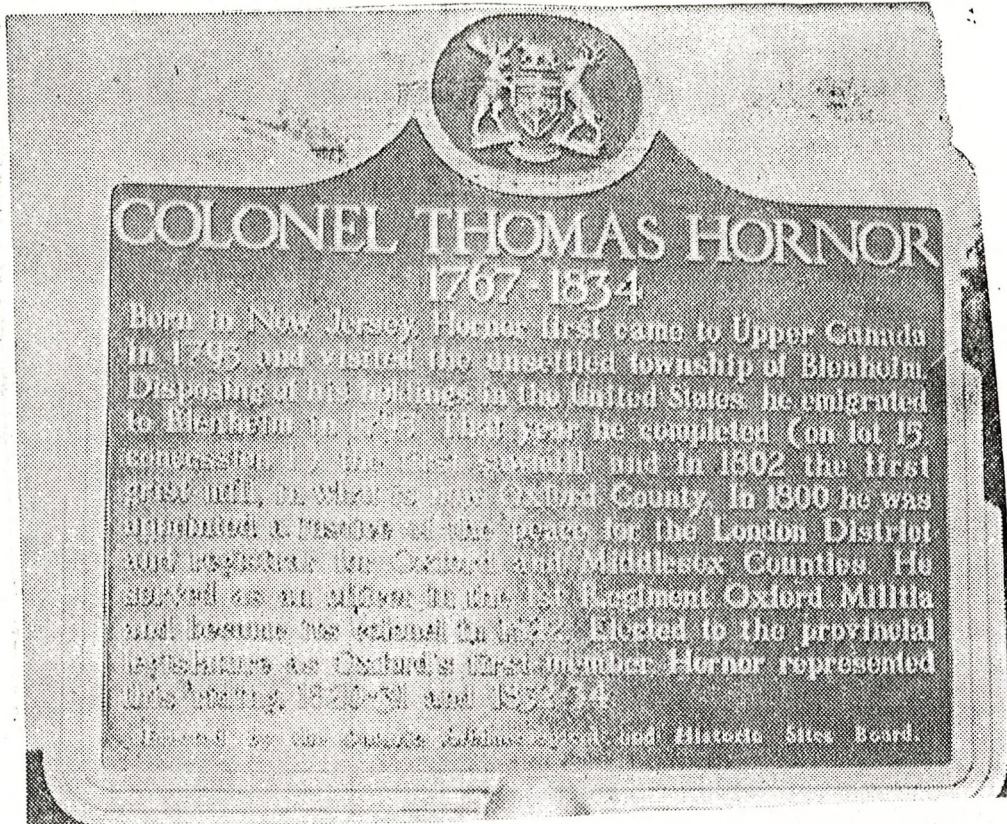 COLONEL THOMAS HORNOR
1767-1834
Born in New Jersey, Hornor first came to Upper Canada
in 1793 and visited the unsettled township of Blenheim.
Disposing of his holdings in the United States he emigrated
to Blenheim in 1795. That year he completed (on lot 15,
concession the first sawmill and in 1802 the first
grist mill, in what is now Oxford County. In 1800 he was
appointed a justice of the peace for the London District
and registrar for Oxford and Middlesex Counties. He
served as an officer in the 1st Regiment Oxford Militia
and became its colonel in 1822. Elected to the provincial
legislature as Oxford's first member, Hornor represented
this 1820-31 and 1834
the and Historic Sites Board.